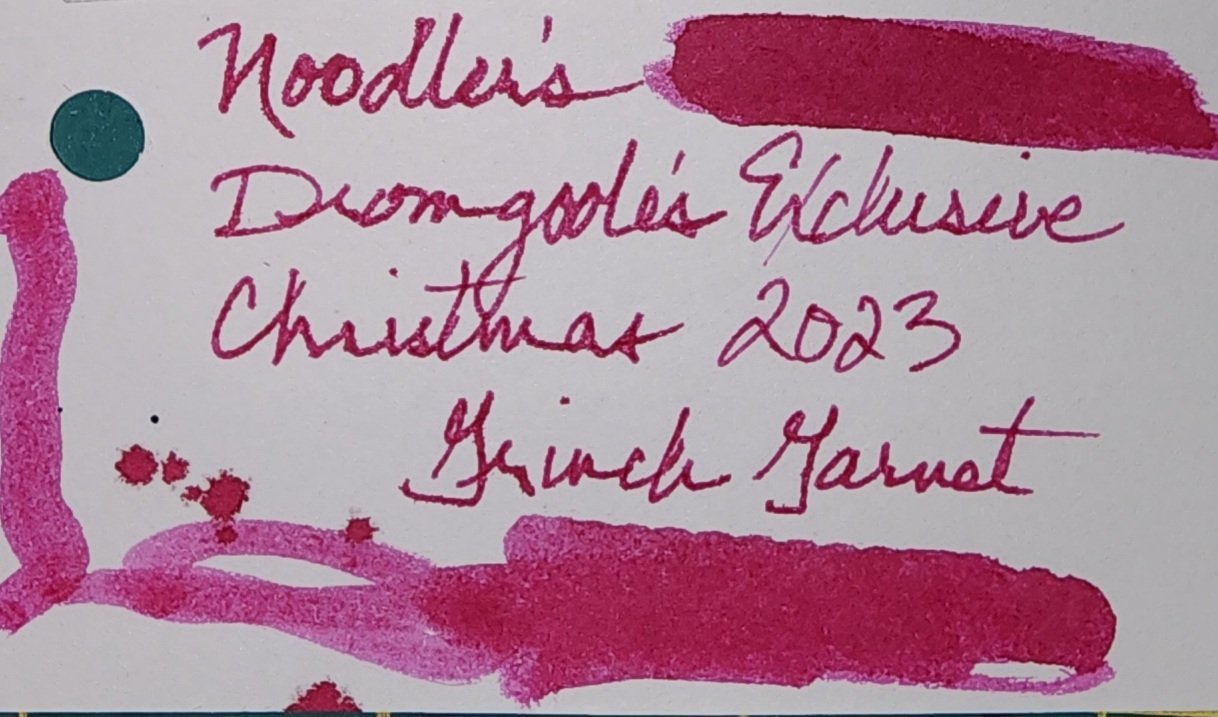 Noodler's
Dromgoole's Exclusive
Christmas 2023
Grinch Garnet